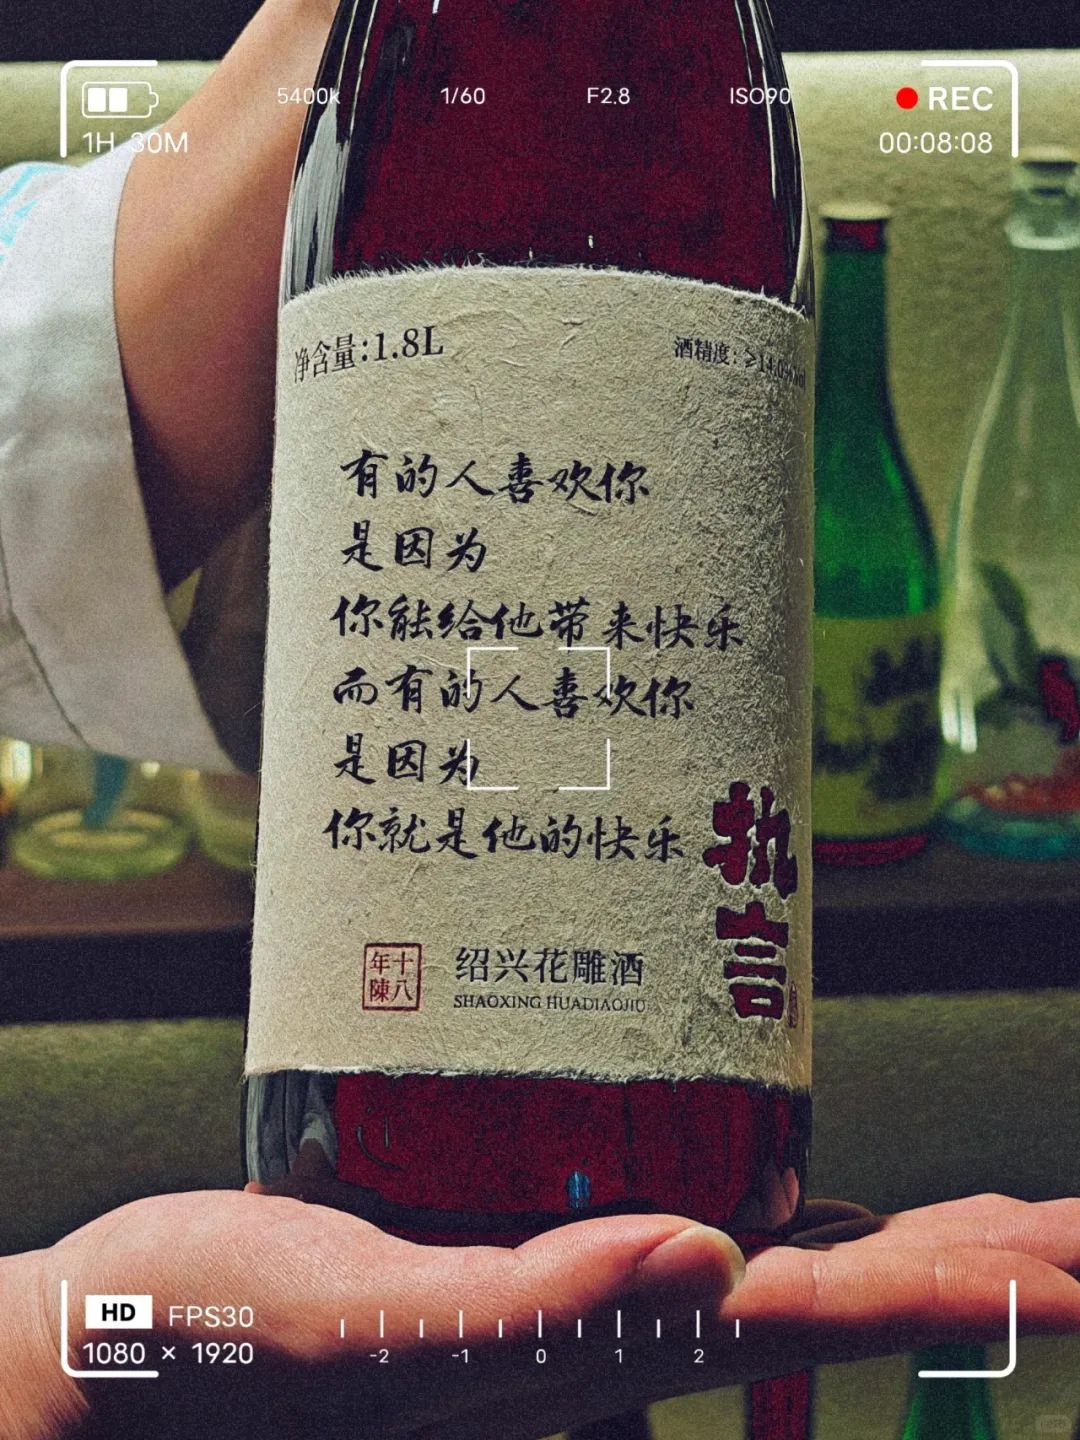 5400k 1/60 F2.8 ISO90 REC
1H 30M 00:08:08
净含量:1.8L
酒精度:≥14.0%vol
有的人喜欢你
是因为
你能给他带来快乐
而有的人喜欢你
是因为
你就是他的快乐
执言
十八年陳
绍兴花雕酒
SHAOXING HUADIAOJIU
HD FPS30
1080 × 1920
-2 -1 0 1 2